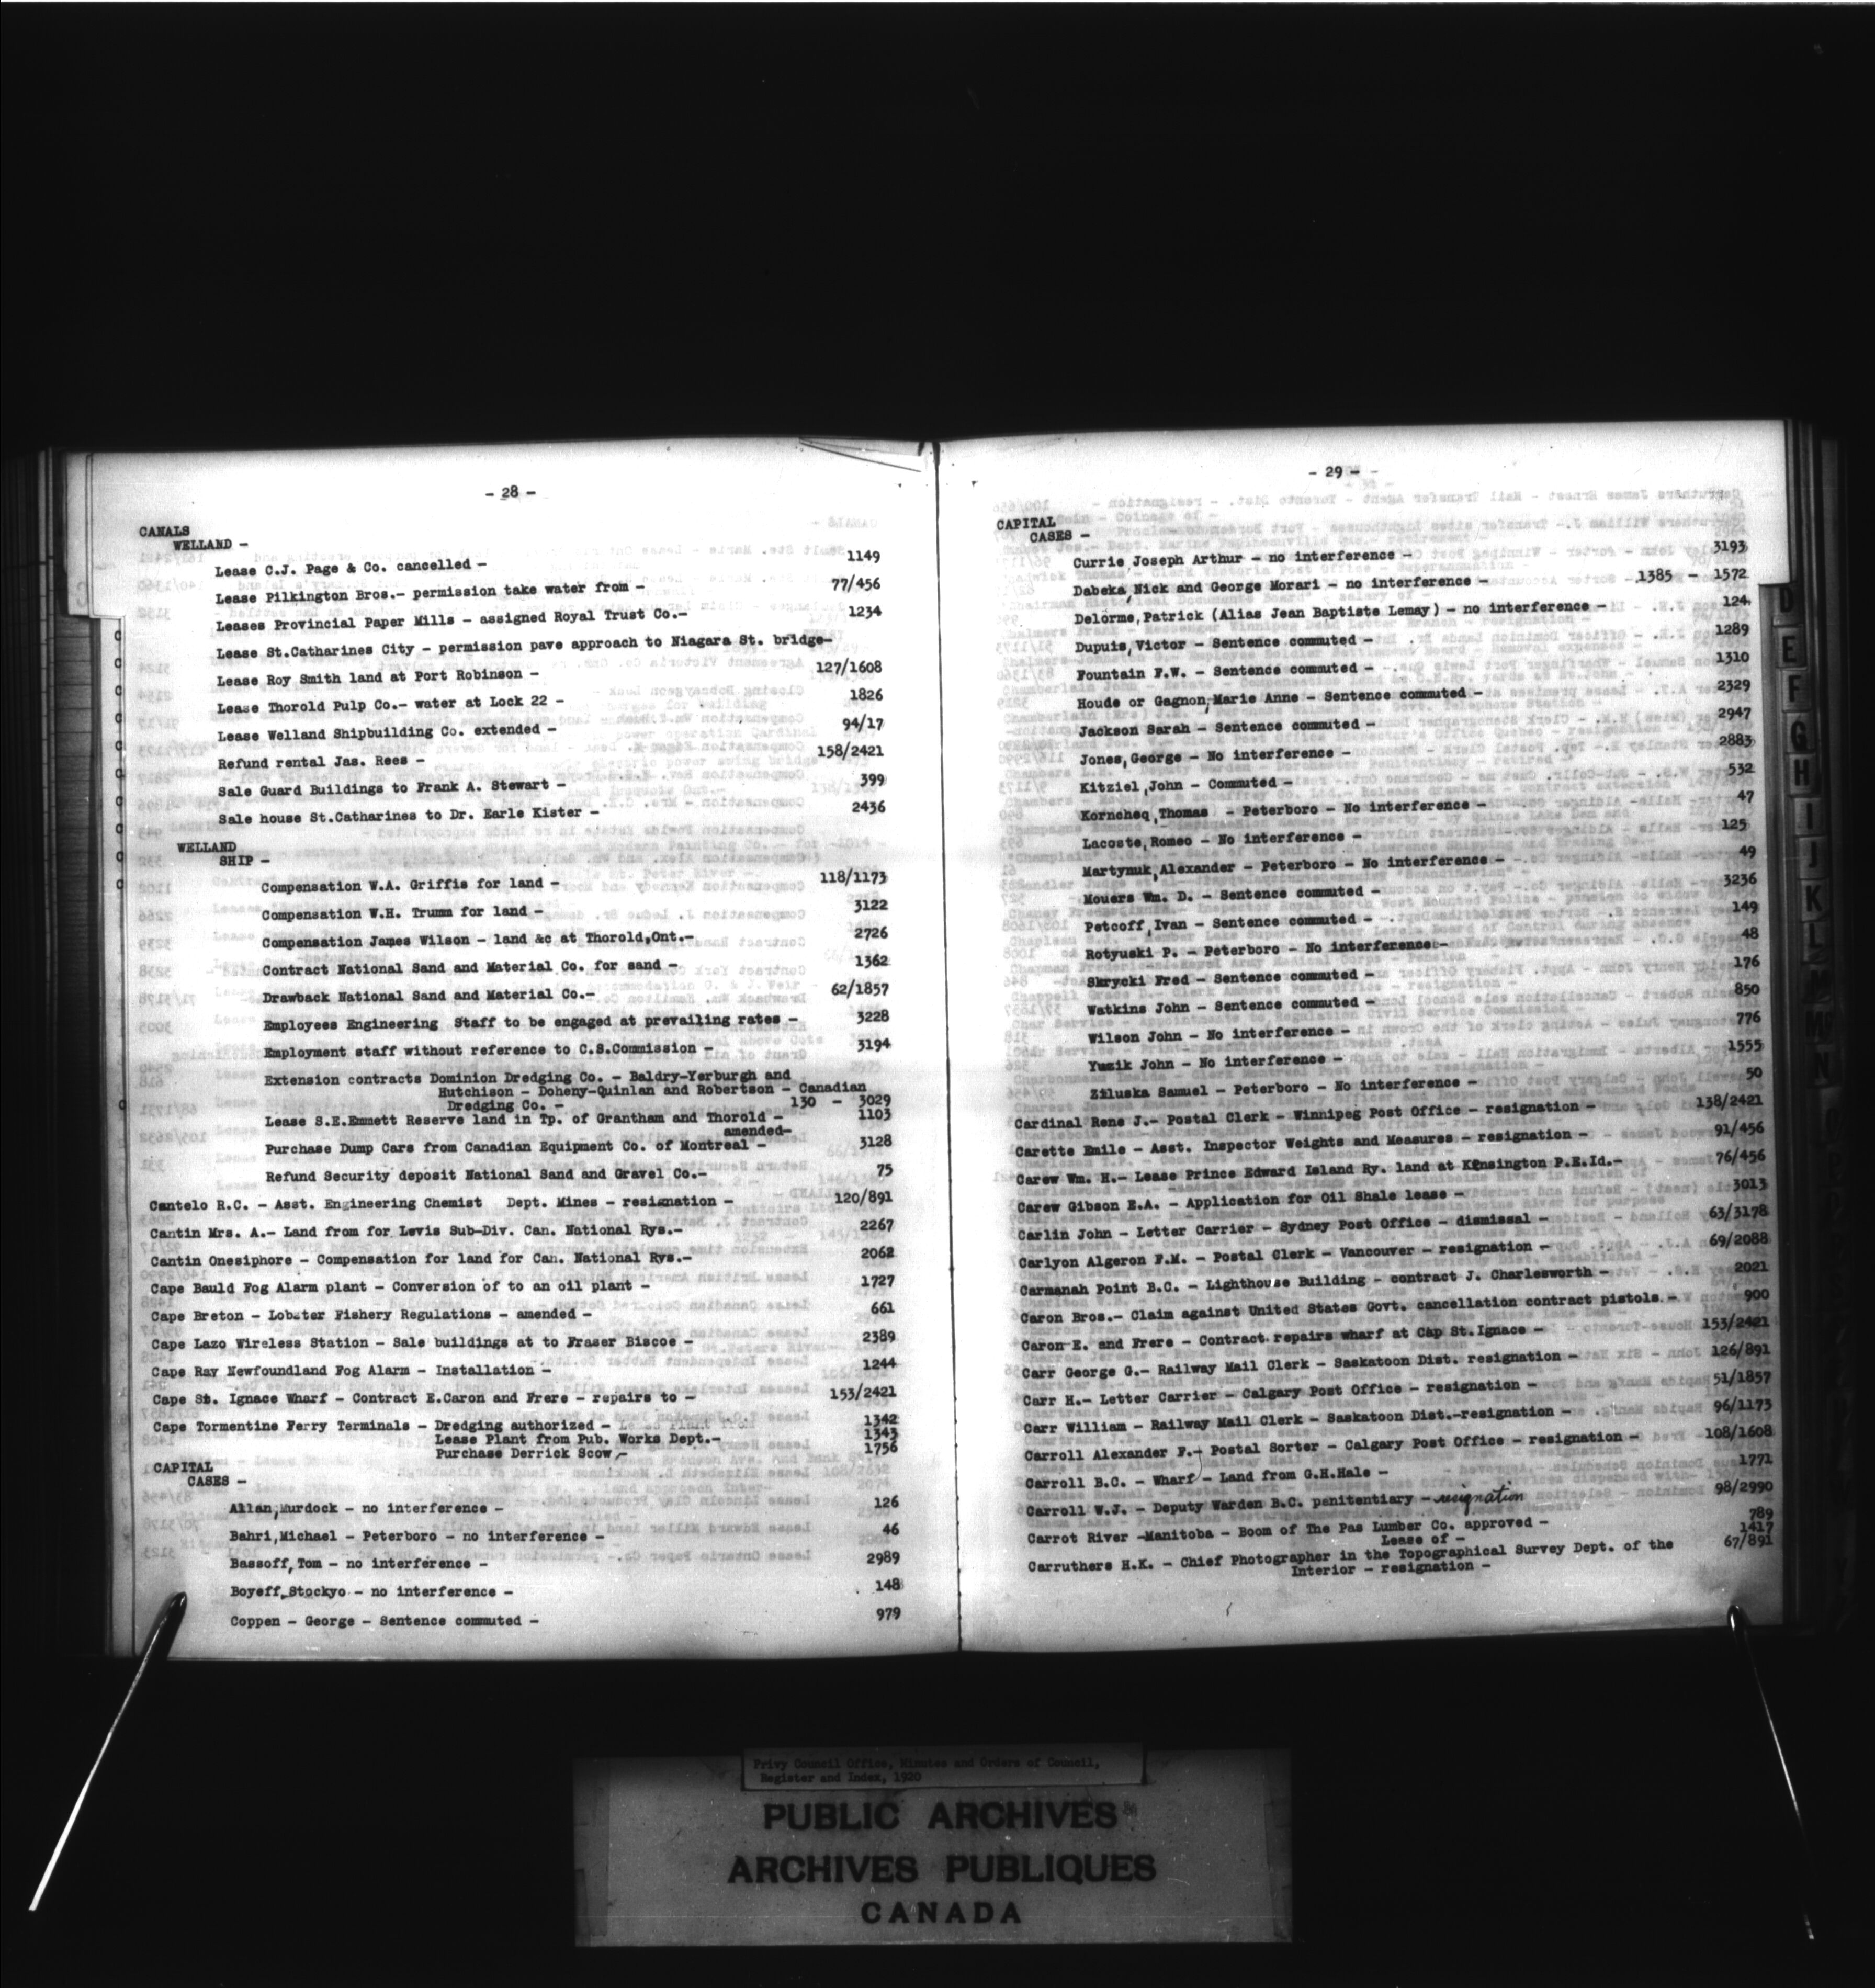 - 28 -
CANALS
WELLAND -
Lease C.J. Page & Co. cancelled - 1149
Lease Pilkington Bros.- permission take water from - 77/456
Leases Provincial Paper Mills - assigned Royal Trust Co.- 1234
Lease St.Catharines City - permission pave approach to Niagara St. bridge-
127/1608
Lease Roy Smith land at Port Robinson -
Lease Thorold Pulp Co.- water at Lock 22 - 1826
Lease Welland Shipbuilding Co. extended - 94/17
Refund rental Jas. Rees - 158/2421
Sale Guard Buildings to Frank A. Stewart - 399
Sale house St.Catharines to Dr. Earle Kister - 2436
WELLAND
SHIP -
Compensation W.A. Griffis for land - 118/1173
Compensation W.H. Trumm for land - 3122
Compensation James Wilson - land &c at Thorold,Ont.- 2726
Contract National Sand and Material Co. for sand - 1362
Drawback National Sand and Material Co.- 62/1857
Employees Engineering Staff to be engaged at prevailing rates - 3228
Employment staff without reference to C.S.Commission - 3194
Extension contracts Dominion Dredging Co. - Baldry-Yerburgh and
Hutchison - Doheny-Quinlan and Robertson - Canadian
Dredging Co. - 130 - 3029
Lease S.E.Emmett Reserve land in Tp. of Grantham and Thorold - 1103
amended-
Purchase Dump Cars from Canadian Equipment Co. of Montreal - 3128
Refund Security deposit National Sand and Gravel Co.- 75
Cantelo R.C. - Asst. Engineering Chemist Dept. Mines - resignation - 120/891
Cantin Mrs. A.- Land from for Levis Sub-Div. Can. National Rys.- 2267
Cantin Onesiphore - Compensation for land for Can. National Rys.- 2062
Cape Bauld Fog Alarm plant - Conversion of to an oil plant - 1727
Cape Breton - Lobster Fishery Regulations - amended - 661
Cape Lazo Wireless Station - Sale buildings at to Fraser Biscoe - 2389
Cape Ray Newfoundland Fog Alarm - Installation - 1244
Cape St. Ignace Wharf - Contract E.Caron and Frere - repairs to - 153/2421
Cape Tormentine Ferry Terminals - Dredging authorized - 1342
Lease Plant from Pub. Works Dept.- 1343
Purchase Derrick Scow - 1756
CAPITAL
CASES -
Allan,Murdock - no interference - 126
Bahri,Michael - Peterboro - no interference - 46
Bassoff,Tom - no interference - 2989
Boyeff,Stockyo - no interference - 148
Coppen - George - Sentence commuted - 979
- 29 -
CAPITAL
CASES -
Currie,Joseph Arthur - no interference - 3193
Dabeka,Nick and George Morari - no interference - 1385 - 1572
Delorme,Patrick (Alias Jean Baptiste Lemay) - no interference - 124
Dupuis,Victor - Sentence commuted - 1289
Fountain F.W. - Sentence commuted - 1310
Houde or Gagnon,Marie Anne - Sentence commuted - 2329
Jackson Sarah - Sentence commuted - 2947
Jones,George - No interference - 2883
Kitziel,John - Commuted - 532
Korncheq,Thomas - Peterboro - No interference - 47
Lacoste,Romeo - No interference - 125
Martynuk,Alexander - Peterboro - No interference - 49
Mouers Wm. D. - Sentence commuted - 3236
Petcoff,Ivan - Sentence commuted - 149
Rotyuski P. - Peterboro - No interference:- 48
Skrycki Fred - Sentence commuted - 176
Watkins John - Sentence commuted - 850
Wilson John - No interference - 776
Yumik John - No interference - 1555
Ziluska Samuel - Peterboro - No interference - 50
Cardinal Rene J.- Postal Clerk - Winnipeg Post Office - resignation - 138/2421
Carette Emile - Asst. Inspector Weights and Measures - resignation - 91/456
Carew Wm. H.- Lease Prince Edward Island Ry. land at Kensington P.E.Id.- 76/456
Carew Gibson E.A. - Application for Oil Shale lease - 3013
Carlin John - Letter Carrier - Sydney Post Office - dismissal - 63/3178
Carlyon Algeron F.M. - Postal Clerk - Vancouver - resignation - 69/2088
Carmanah Point B.C. - Lighthouse Building - contract J. Charlesworth - 2021
Caron Bros.- Claim against United States Govt. cancellation contract pistols.- 900
Caron E. and Frere - Contract repairs wharf at Cap St.Ignace - 153/2421
Carr George G.- Railway Mail Clerk - Saskatoon Dist. resignation - 126/891
Carr H.- Letter Carrier - Calgary Post Office - resignation - 51/1857
Carr William - Railway Mail Clerk - Saskatoon Dist.-resignation - 96/1173
Carroll Alexander F.- Postal Sorter - Calgary Post Office - resignation - 108/1608
Carroll B.C. - Wharf - Land from G.H.Hale - 1771
Carroll W.J. - Deputy Warden B.C. penitentiary - resignation 98/2990
Carrot River -Manitoba - Boom of The Pas Lumber Co. approved - 789
Lease of - 1417
Carruthers H.K. - Chief Photographer in the Topographical Survey Dept. of the 67/891
Interior - resignation -
D
E
F
G
H
I
J
K
L
M
W
N
Privy Council Office, Minutes and Orders of Council,
Register and Index, 1920
PUBLIC ARCHIVES
ARCHIVES PUBLIQUES
CANADA